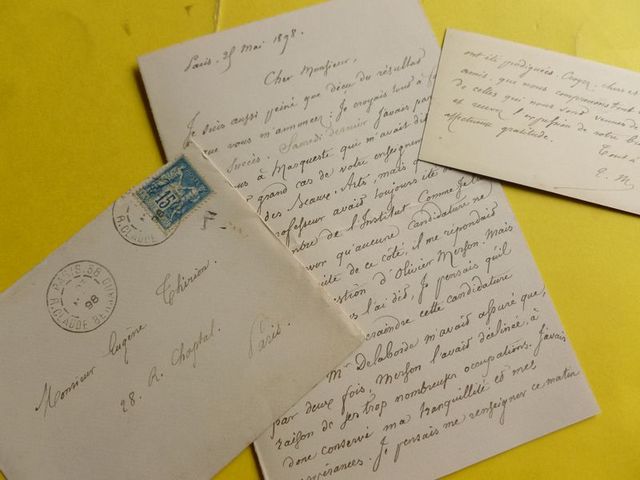 Paris. 25 Mai 1898.
Cher Monsieur,
Je suis aussi peiné que déçu du résultat
que vous m'annoncez; Je croyais tous à
succès. Samedi dernier J'avais
à Masqueste qui m'avait dit
grand cas de votre enseignement
des Beaux-Arts, mais
professeur avait toujours été
de l'Institut. Comme Je
qu'aucune candidature ne
de ce côté, il me répondait
question d'Olivier Merson. Mais
l'ai dit, Je pensais qu'il
craindre cette candidature
Mr Delaborde m'avait assuré que,
par deux fois, Merson l'avait déclinée, à
raison de ses trop nombreuses occupations. J'avais
donc conservé ma tranquillité et mes
espérances. Je pensais me renseigner ce matin
ont été prodiguées. Croyez, cher
amis, que nous comprenons
de celles qui nous sont venues
et recevez l'expression de notre
affectueuse gratitude.
Tout à
E. M
15
PARIS
R. CLAUDE
PARIS
98
R. CLAUDE BERNARD
Monsieur Eugène Thirion.
28. R. Chaptal.
Paris.